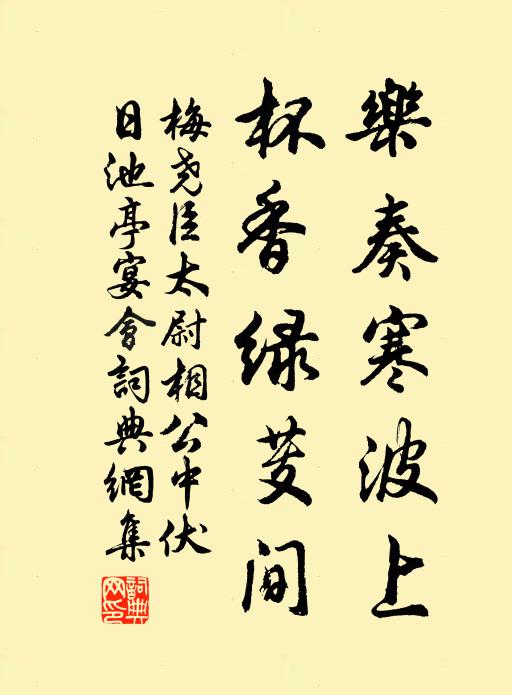 樂奏寒波上
杯香緑芰间
梅堯臣太尉相公中伏
日池亭宴會詞典網集
詞典网印